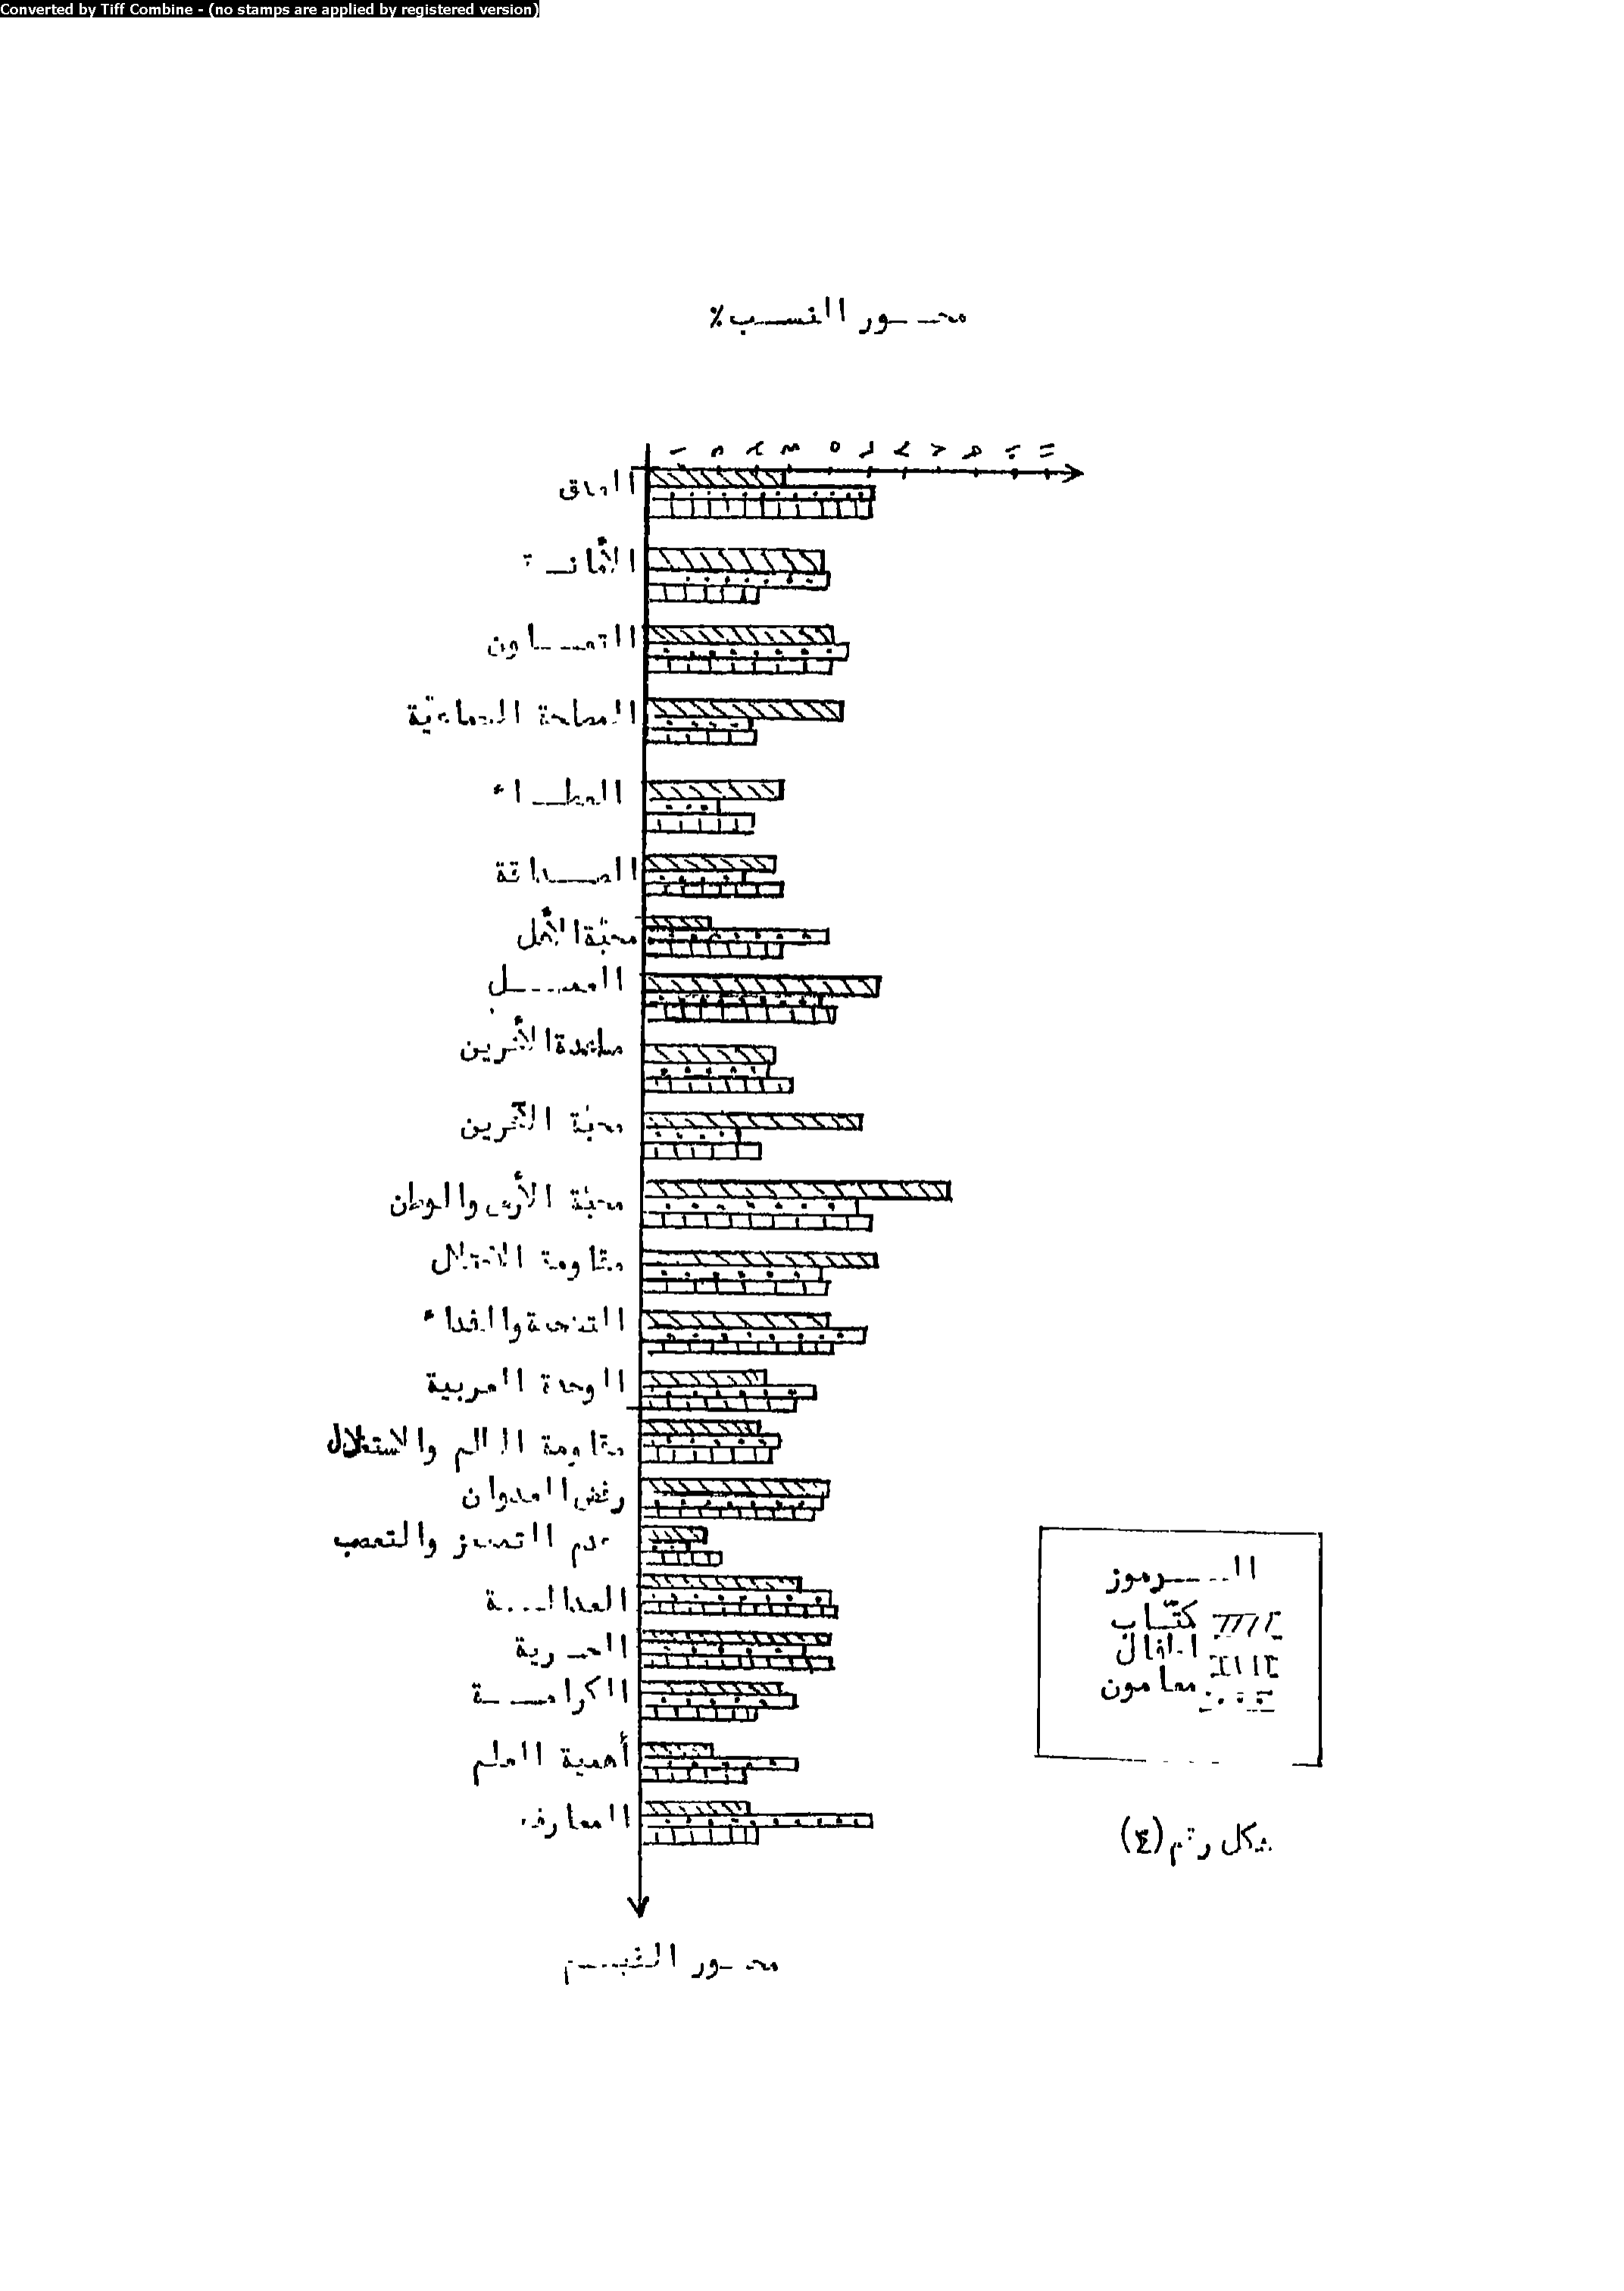 Converted by Tiff Combine - (no stamps are applied by registered version)
محـــور النســب٪
١ ٢ ٣ ٤ ٥ ٦ ٧ ٨ ٩ ١٠ ١١
الصدق
الأمانــة
التعــاون
المصلحة الجماعيّة
العطــاء
الصــداقة
محبّة الأهل
العمـــل
مساعدة الآخرين
محبّة الآخرين
محبّة الأرض والوطن
مقاومة الاحتلال
التضحية والفداء
الوحدة العربية
مقاومة الظلم والاستغلال
رفض العدوان
عدم التمييز والتعصب
العدالــة
الحــرية
الكرامــة
أهمية العلم
المعارف
محــور القيــم
الـــرموز
كتّــاب
اطفال
معلمون
شكل رقم (٤)